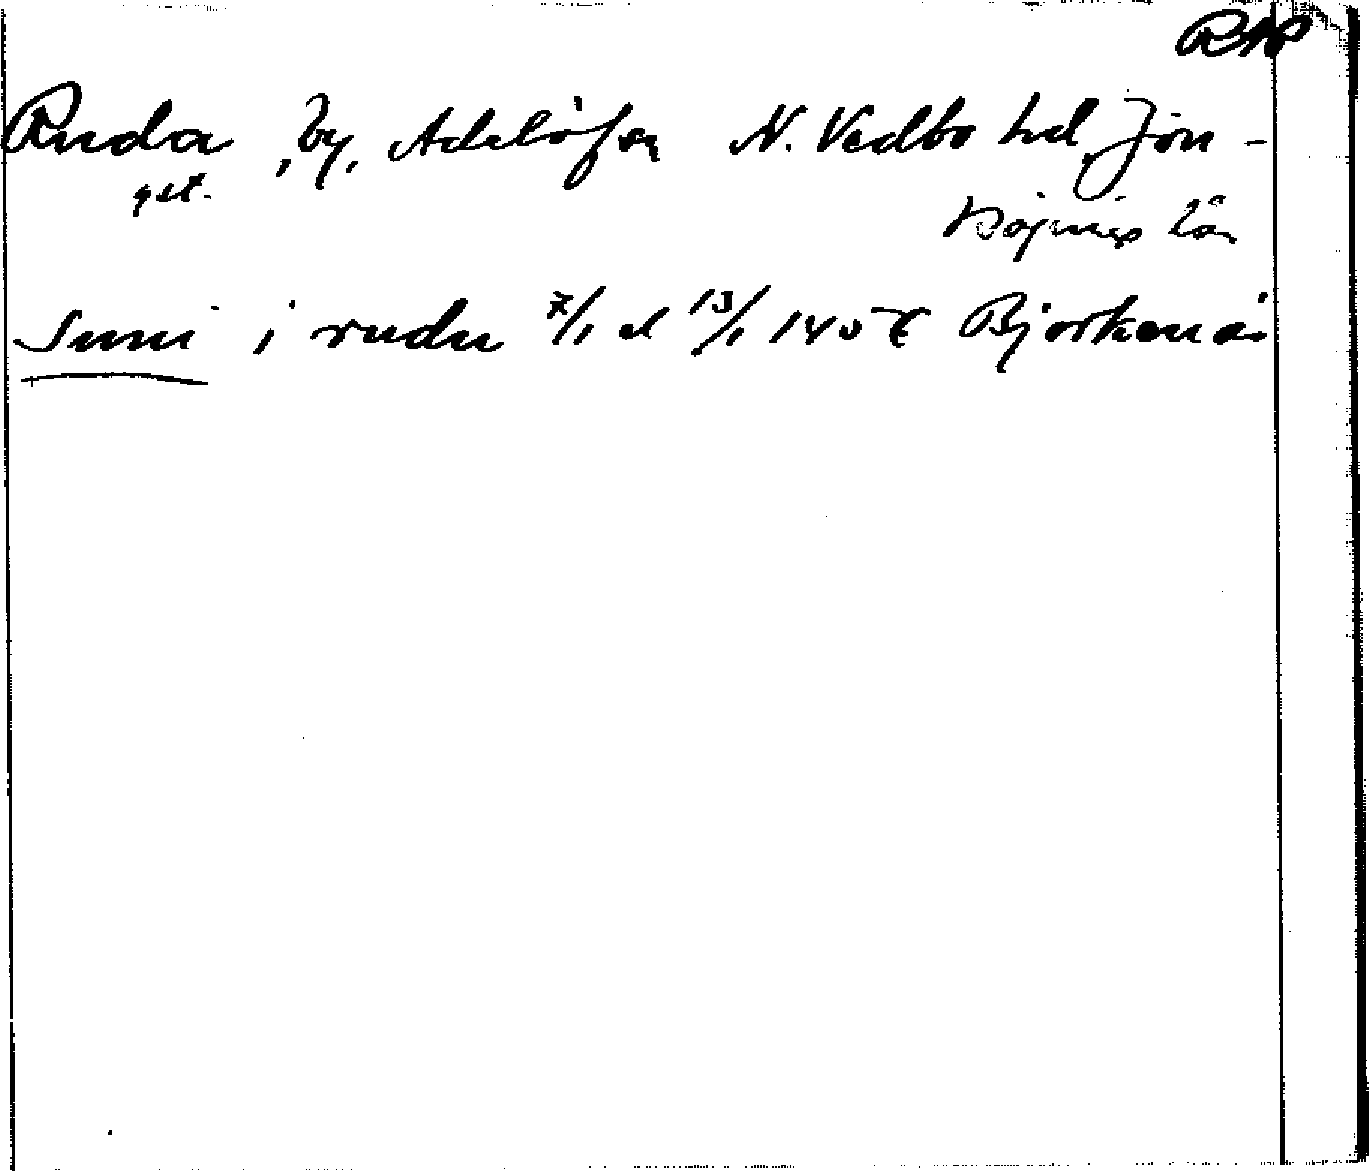 RAP
Ruda, by, Adelöfsn N. Vedbo hd, Jön-
gst.
köpings län
Suni i rudu 7/1 el 13/1 145 Björkenäs